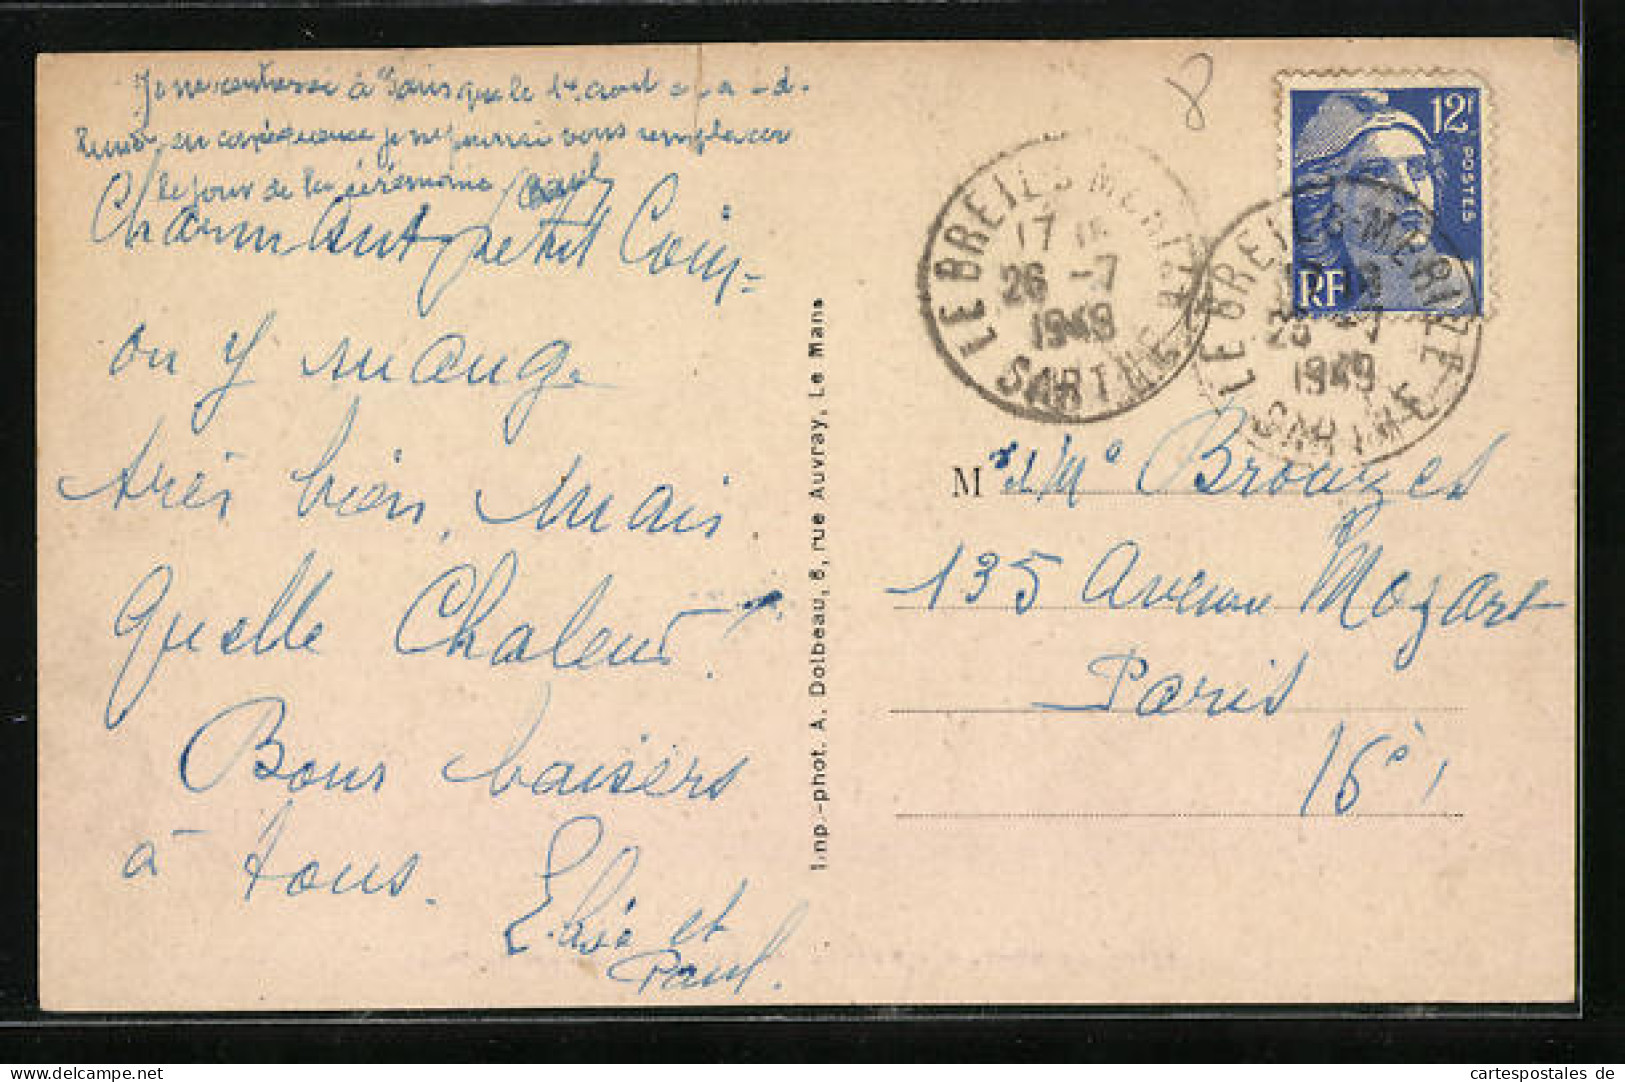 Je ne rentrerai à Paris que le 1er août c.-a-d.
lundi, en conséquence je ne pourrai vous remplacer
le jour de la cérémonie Paul
Charmant petit Coin =
on y mange
très bien, mais
quelle Chaleur.
Bons baisers
à tous.
Elise et
Paul.
Imp.-phot. A. Dolbeau, 6, rue Auvray, Le Mans
8
12F
POSTES
RF
LE BREIL-S-MERIZE
17 18
26 -7
1949
SARTHE
LE BREIL-S-MERIZE
26 -7
1949
SARTHE
Mr et Me Brouzes
135 Avenue Mozart
Paris
16è,
cartespostales de
delcampe.net